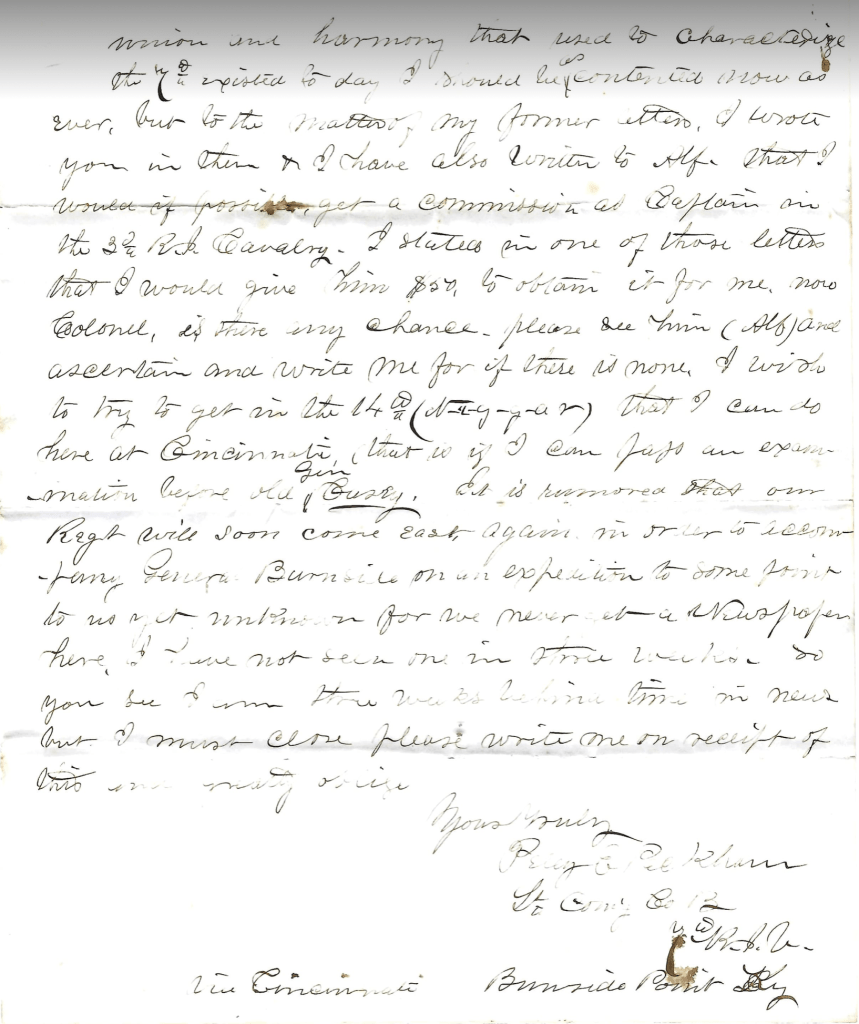 union and harmony that used to characterize
the 7th existed to day I should be as contented now as
ever, but to the matter of my former letters, I wrote
you in them & I have also writen to Alf. that I
would if possible, get a commission as Captain in
the 3d R I Cavalry. I stated in one of those letters
that I would give him $50, to obtain it for me. now
Colonel, is there any chance. please see him (Alf) and
ascertain and write me for if there is none, I wish
to try to get in the 14th (N-i-g-g-a-r) that I can do
here at Cincinnati, (that is if I can pass an exam-
-ination before old Gen Casey. It is rumored that our
Regt will soon come East, again in order to accom-
-pany General Burnside on an expedition to some point
to us yet unknown for we never get a Newspaper
here, I have not seen one in three weeks. So
you see I am three weeks behind time in news
but I must close please write me on receipt of
this and oblige
Yours truly
Peleg E Peckham
Lt Comg Co B
7th R.I.V.
Via Cincinnati Burnside Point Ky